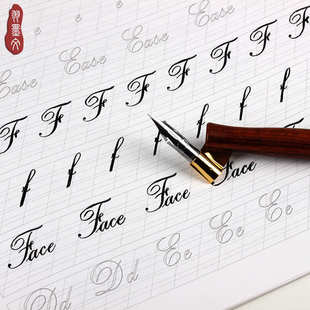 e e e e
Ease Ease Ease
F F F F F F F F
f f f f f f f
Face Face Face Face
Dd Dd Ee Ee Ee